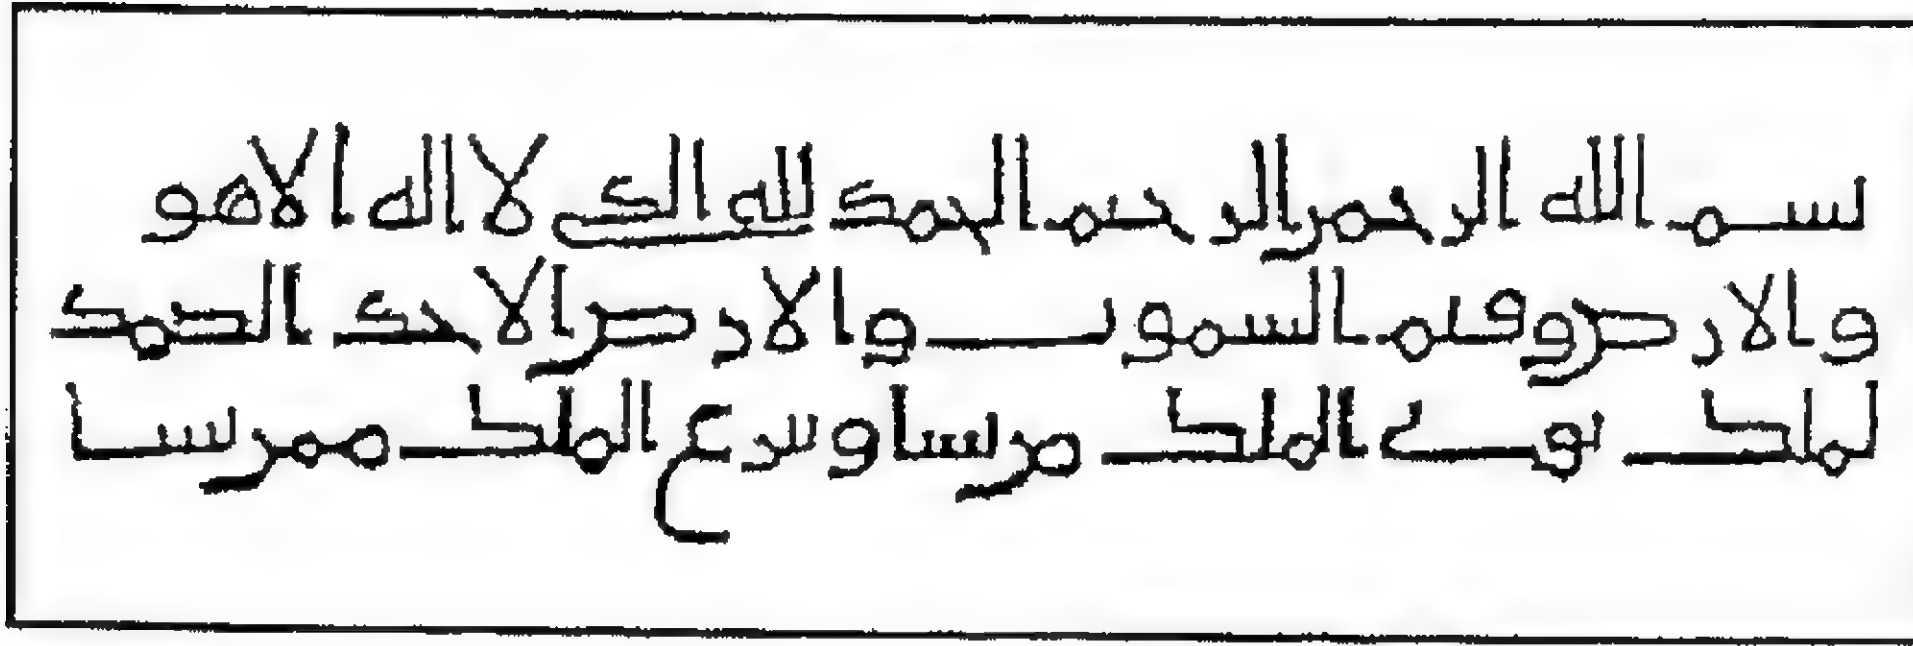 بسم الله الرحمن الرحيم الحمد لله الذي لا اله الا هو
والارض وقيم السموت والارض الاحد الصمد
لملك يوتي الملك من يشا وينزع الملك ممن يشا